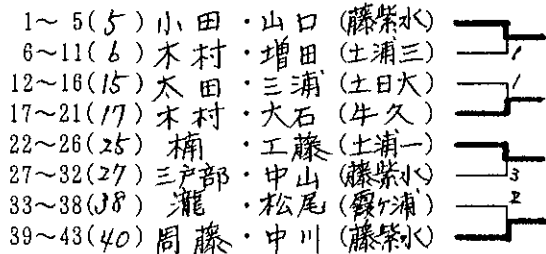 1～ 5(5) 小田・山口(藤紫水)
6～11(6) 木村・増田(土浦三) 1
12～16(15) 太田・三浦(土日大) 1
17～21(17) 木村・大石(牛久)
22～26(25) 楠・工藤(土浦一)
27～32(27) 三戸部・中山(藤紫水) 3
33～38(38) 瀧・松尾(霞ヶ浦) 2
39～43(40) 周藤・中川(藤紫水)